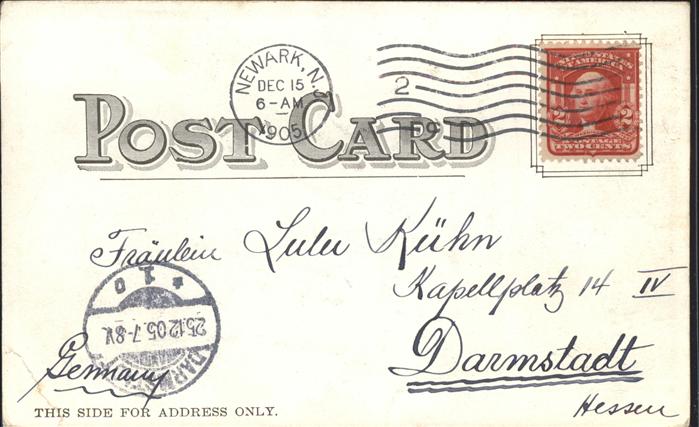 NEWARK, N.J.
DEC 15
6-AM
1905
2
POST CARD
UNITED STATES
OF AMERICA
2 2
POSTAGE
TWO CENTS
Fräulein Lulu Kühn
Kapellplatz 14 IV
Darmstadt
Hessen
Germany
* 1 0
25.12.05.7-8V.
DARM
THIS SIDE FOR ADDRESS ONLY.